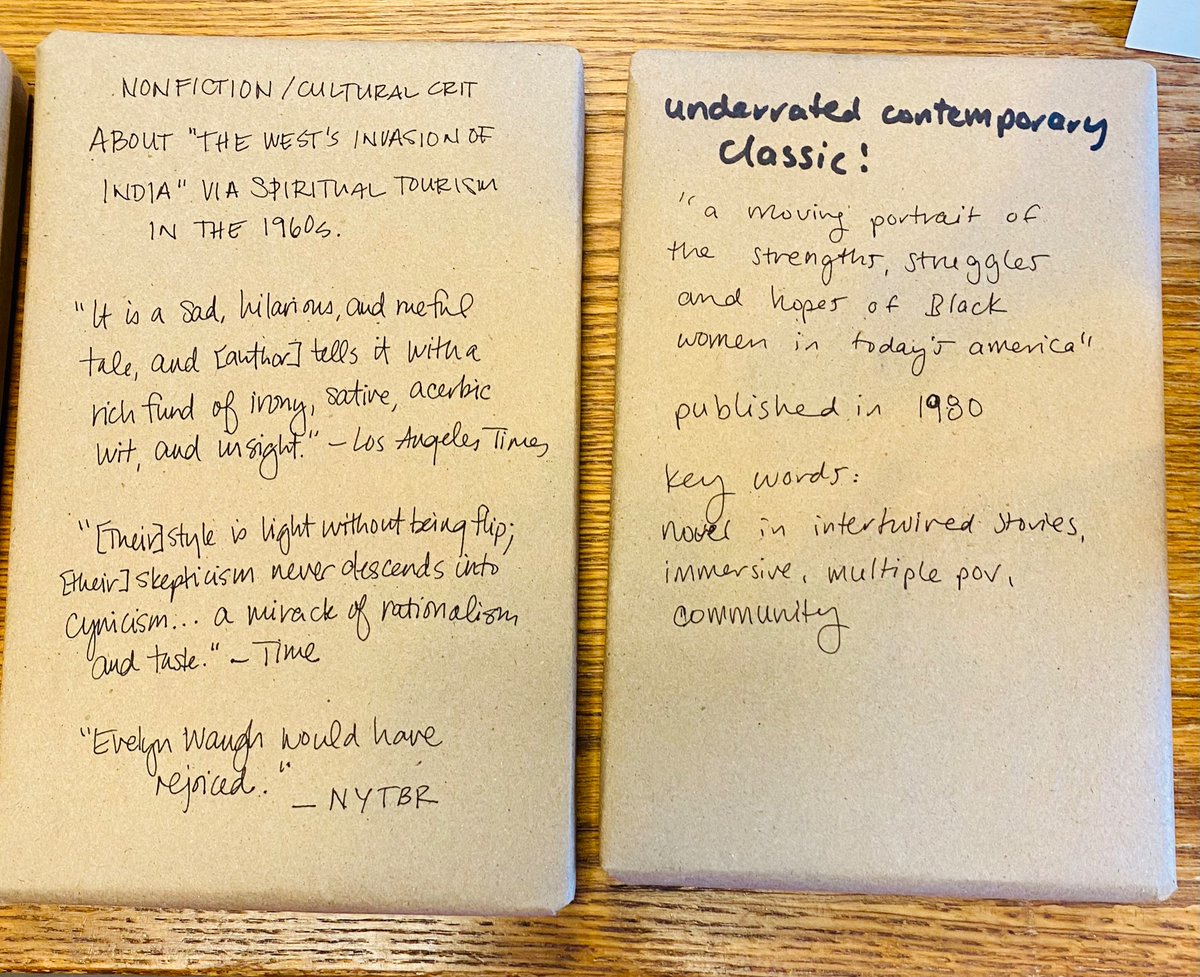 NONFICTION/CULTURAL CRIT
ABOUT "THE WEST'S INVASION OF
INDIA" VIA SPIRITUAL TOURISM
IN THE 1960s.
"It is a sad, hilarious, and rueful
tale, and [author] tells it with a
rich fund of irony, satire, acerbic
wit, and insight." – Los Angeles Times
"[Their] style is light without being flip;
[their] skepticism never descends into
cynicism... a miracle of rationalism
and taste." – Time
"Evelyn Waugh would have
rejoiced."
– NYTBR
underrated contemporary
classic!
"a moving portrait of
the strengths, struggles
and hopes of Black
women in today's america"
published in 1980
key words:
novel in intertwined stories,
immersive, multiple pov,
community